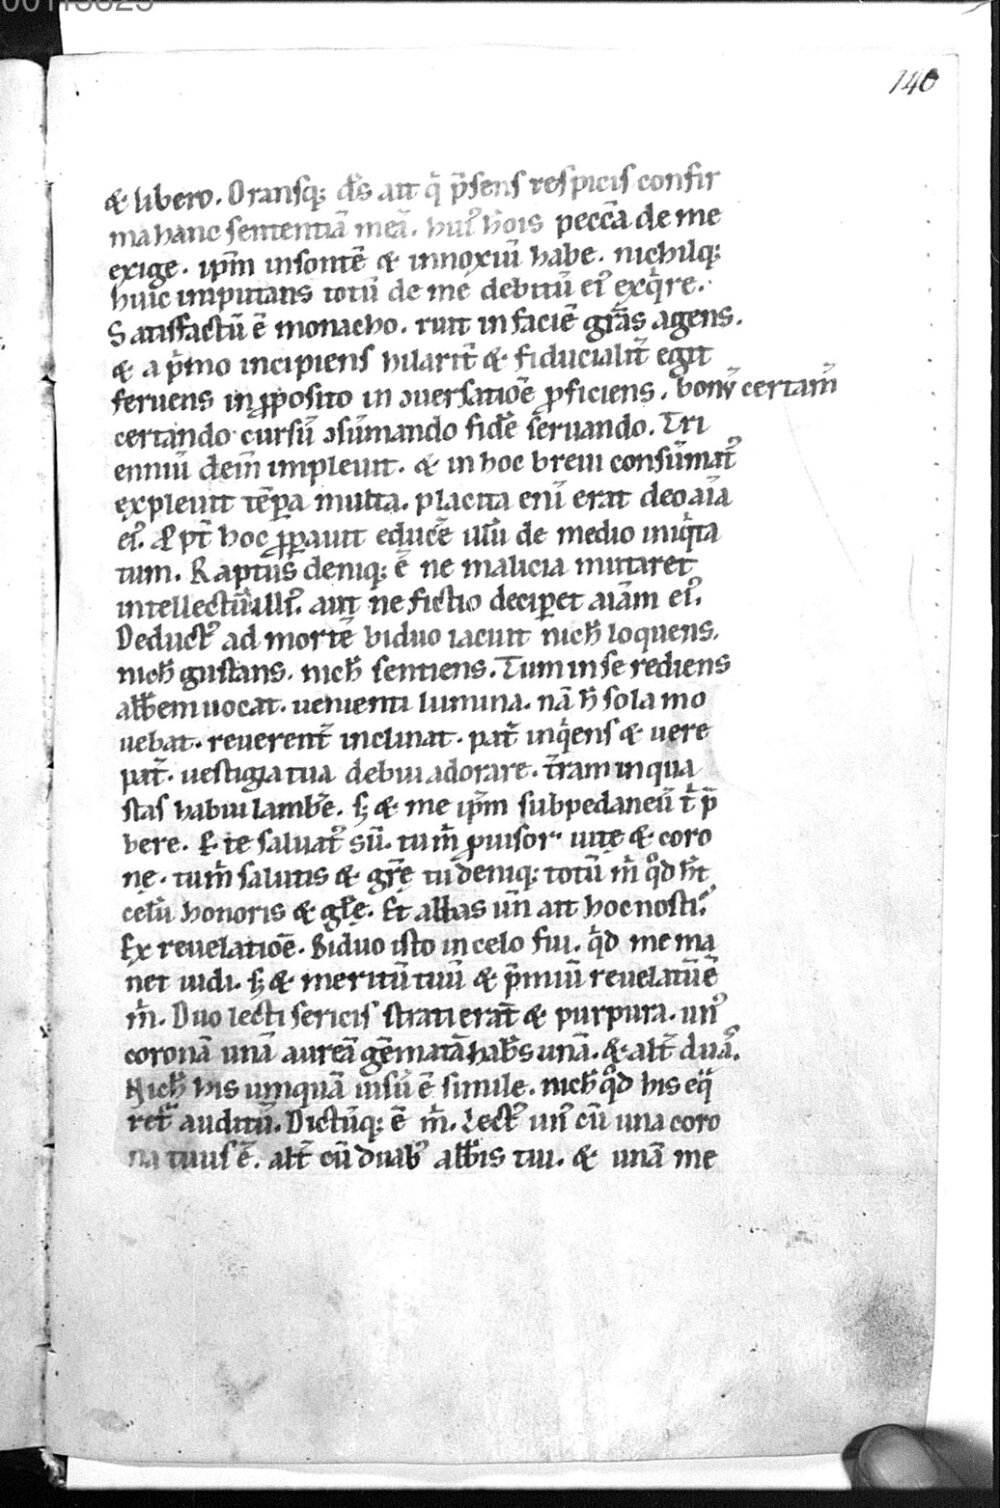 00113823
140
& libero. Oransq; ds̄ ait q̄ p̄sens respicis confir
ma hanc sententiā meā. huiꝰ hōis pecc̄a de me
exige. ip̄m insontē & innoxiū habe. nichilq;
huic imputans totū de me debitū eiꝰ exq̄re.
Satisfactū ē monacho. ruit in faciē gr̄as agens.
& a p̄mo incipiens hilarit̄ & fiducialit̄ egit
feruens in ꝓposito in ↄuersatiōe ꝓficiens. bonū certam̄
certando cursū ↄsūmando fidē seruando. Tri
enniū dein̄ impleuit. & in hoc breui consūmatꝰ
expleuit tēꝑa multa. placita eni̅ erat deo aīa
eiꝰ. & pt̄ hoc ꝓꝑauit educ̄e illū de medio iniq̄ta
tum. Raptus deniq; ē ne malicia mutaret
intellectū illiꝰ. aut ne fictio deciꝑet aīam eiꝰ.
Deductꝰ ad mortē biduo iacuit nich̄ loquens.
nich̄ gustans. nich̄ sentiens. Tum in se rediens
abb̄em uocat. uenienti lumina. nā h̄ sola mo
uebat. reuerent̄ inclinat. pat̄ inq̄ens & uere
pat̄. uestigia tua debui adorare. t̄ram in qua
stas habui lamb̄e. ꝫ & me ip̄m subpedaneū t̄ p̄
bere. Ꝑ te saluatꝰ sū. tu m̄ ꝓuisor uitę & coro
nę. tu m̄ salutis & gr̄ę tu deniq; totū m̄ qd̄ h̄t
celū honoris & gl̄ę. Et abbas un̄ ait hoc nosti?
Ex reuelatiōe. Biduo isto in celo fui. qd̄ me ma
net uidi. ꝫ & meritū tuū & p̄miū reuelatū ē
m̄. Duo lecti sericis strati erat̄ & purpura. unꝰ
coronā unā aureā gēmatā hab̄s unā. & alt̄ duā.
Nich̄ his umquā uisū ē simile. nich̄ qd̄ his eq̄
ret̄ auditū. Dictūq; ē m̄. Lectꝰ unꝰ cū una coro
na tuus ē. alt̄ cū duabꝰ abb̄is tui. & unā me